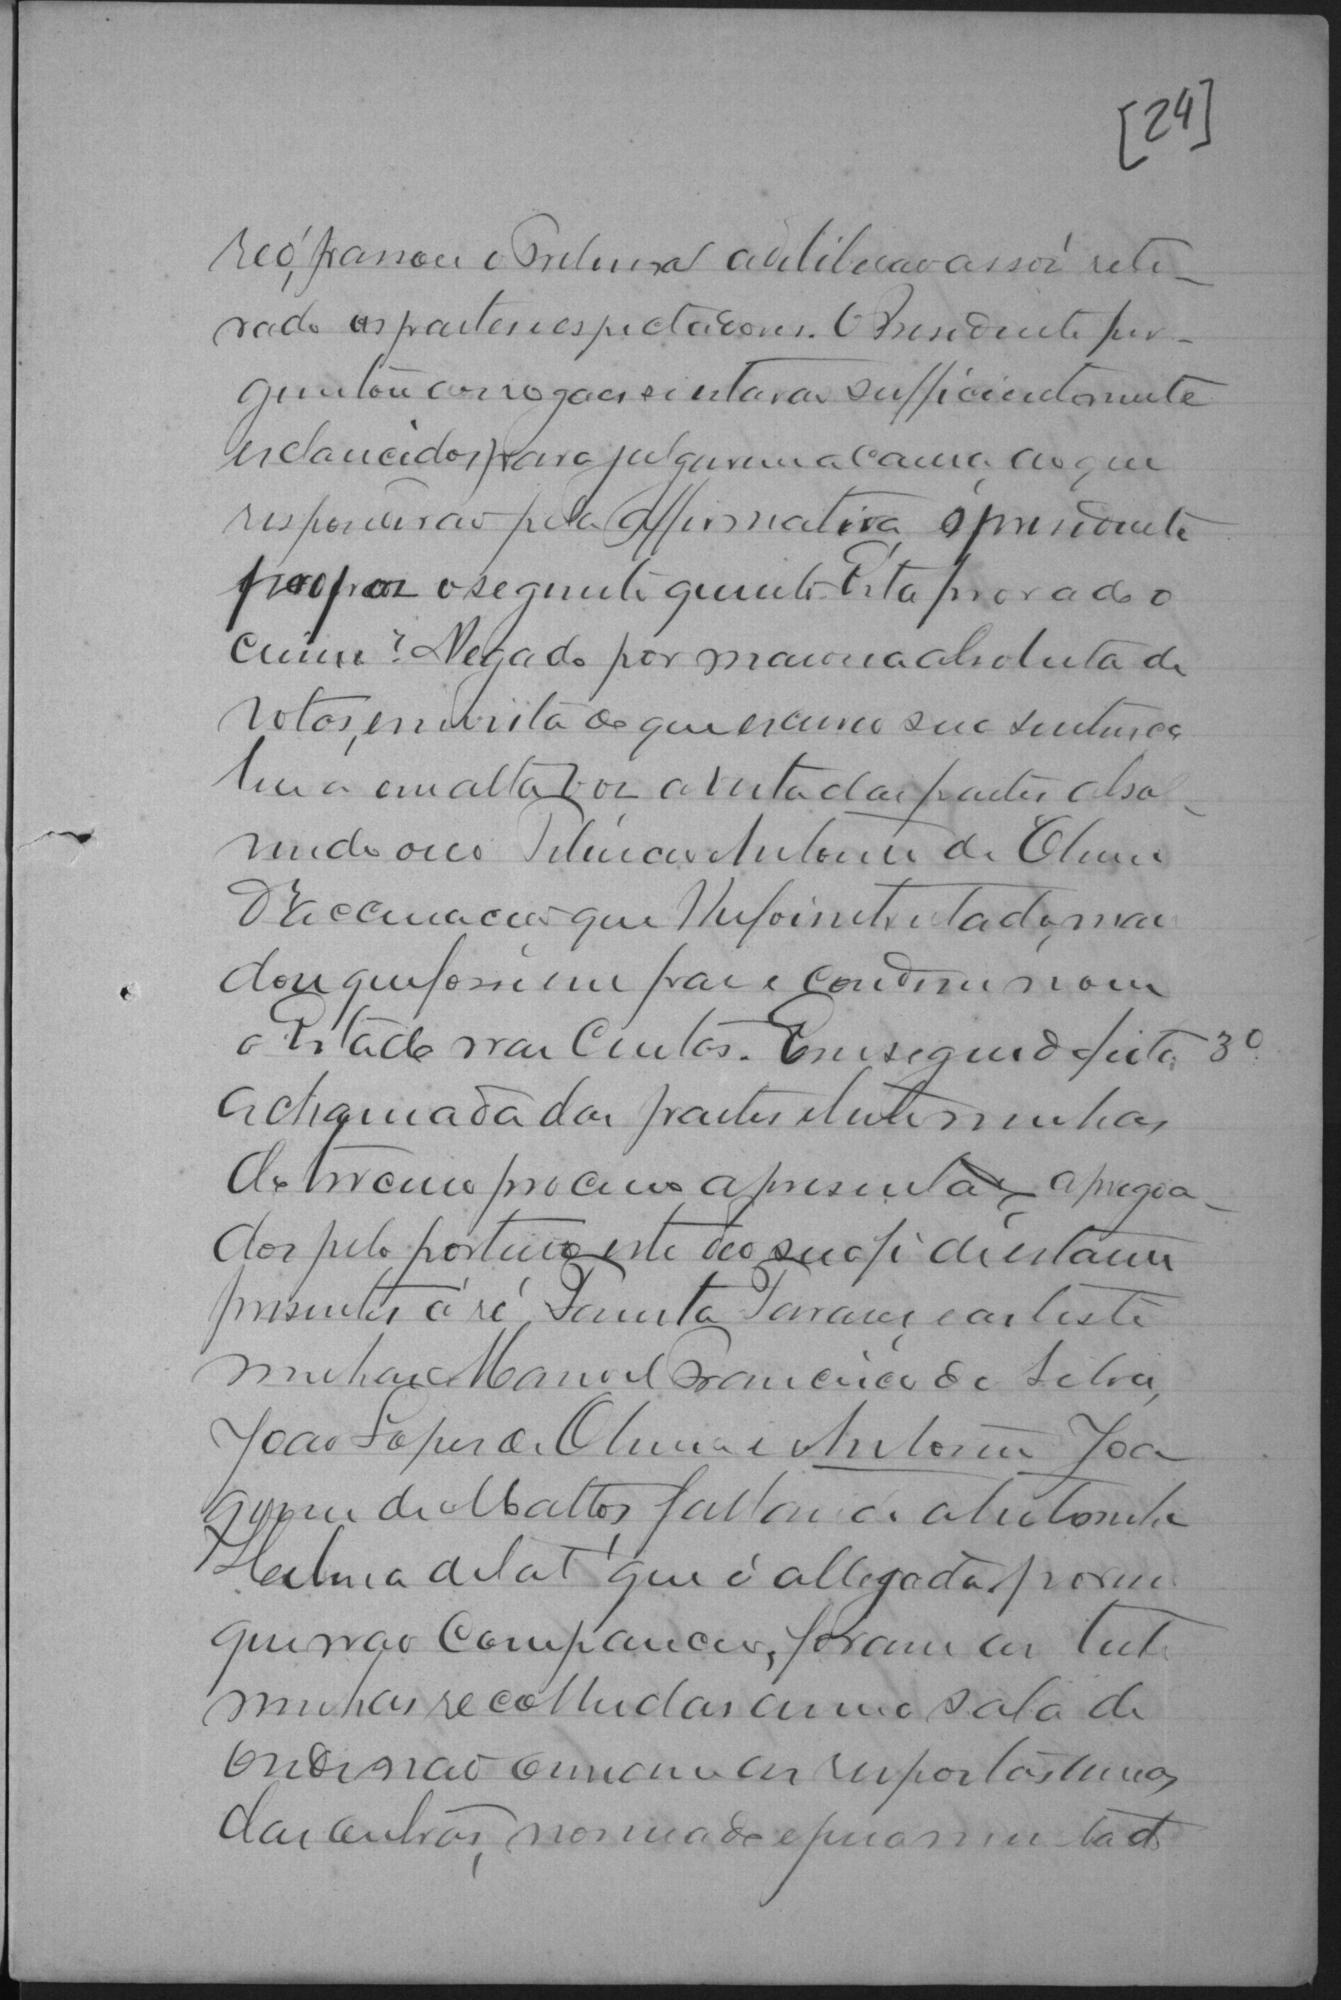 [24]
reó, passou o Tribunal a deliberar a sós reti-
rado as partes e espectadores. O Presidente per-
guntou aos vogaes si estavão sufficientemente
esclarecidos para julgarem a causa, ao que
responderão pela affirmativa, o presidente
propoz o seguinte quesito Está provado o
crime? Negado por maioria absoluta de
votos, em vista do que escreveo sua sentença
lida em alta voz a vista das partes absol-
vendo o reo Antonio de Oliveira
D'accusação que lhe foi intentada, man
dou que fosse em paz e condemnou
o Estado nas Custas. Em seguida feita 3º
a chamada das partes e testemunhas
do terceiro processo apresenta apregoa-
dos pelo porteiro este deo sua fé de estarem
presentes a ré, Tavares, e as teste
munhas Manoel Francisco da Silva,
João Lopes de Oliveira e Antonio Joa
quim de Mattos faltando a testemunha
que é allegada, porem
que não compareceu, foram as teste
munhas recolhidas a uma sala de
onde não ouvissem as respostas umas
das outras,